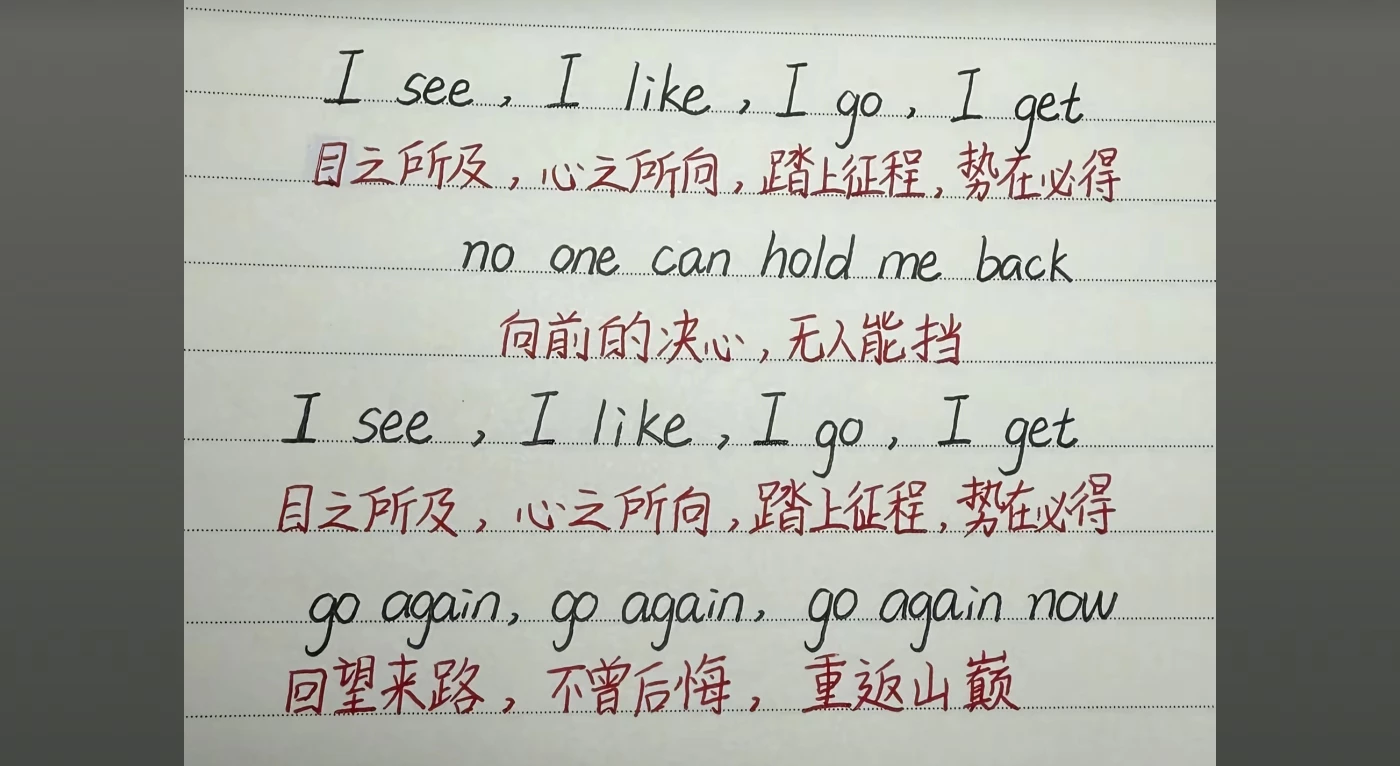 I see, I like, I go, I get
目之所及，心之所向，踏上征程，势在必得
no one can hold me back
向前的决心，无人能挡
I see, I like, I go, I get
目之所及，心之所向，踏上征程，势在必得
go again, go again, go again now
回望来路，不曾后悔，重返山巅